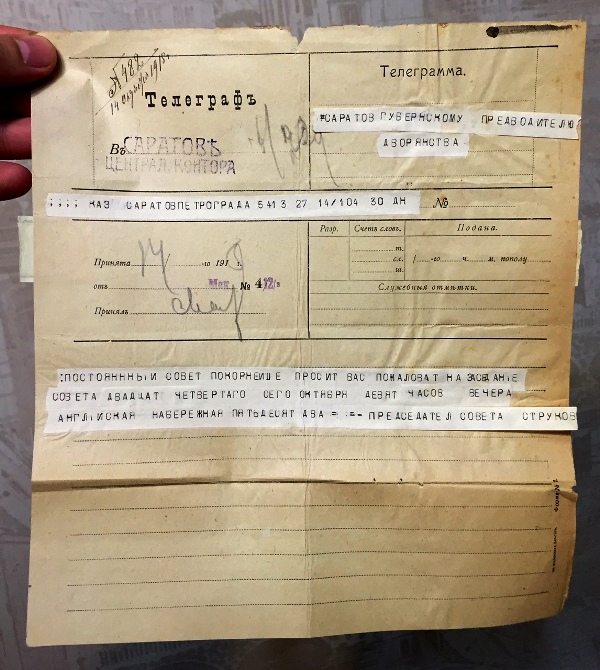 № 482
14 октября 1915 г.
Телеграфъ
Въ САРАТОВЪ
ЦЕНТРАЛ. КОНТОРА
Телеграмма.
=САРАТОВ ГУБЕРНСКОМУ ПРЕДВОДИТЕЛЮ
ДВОРЯНСТВА
;;;; КАЗ САРАТОВПЕТРОГРАДА 5413 27 14/104 30 ДН
№
Принята 14/ -го 191 г.
отъ № 4
Принялъ
Разр. Счетъ словъ. Подана.
т.
сл. / -го ч. м. пополу
ш.
Служебныя отмѣтки.
:ПОСТОЯННЫЙ СОВЕТ ПОКОРНЕИШЕ ПРОСИТ ВАС ПОЖАЛОВАТ НА ЗАСЕДАНIЕ
СОВЕТА ДВАДЦАТ ЧЕТВЕРТАГО СЕГО ОКТЯБРЯ ДЕВЯТ ЧАСОВ ВЕЧЕРА
АНГЛIЙСКАЯ НАБЕРЕЖНАЯ ПЯТЬДЕСЯТ ДВА = :=- ПРЕДСЕДАТЕЛ СОВЕТА СТРУКОВ